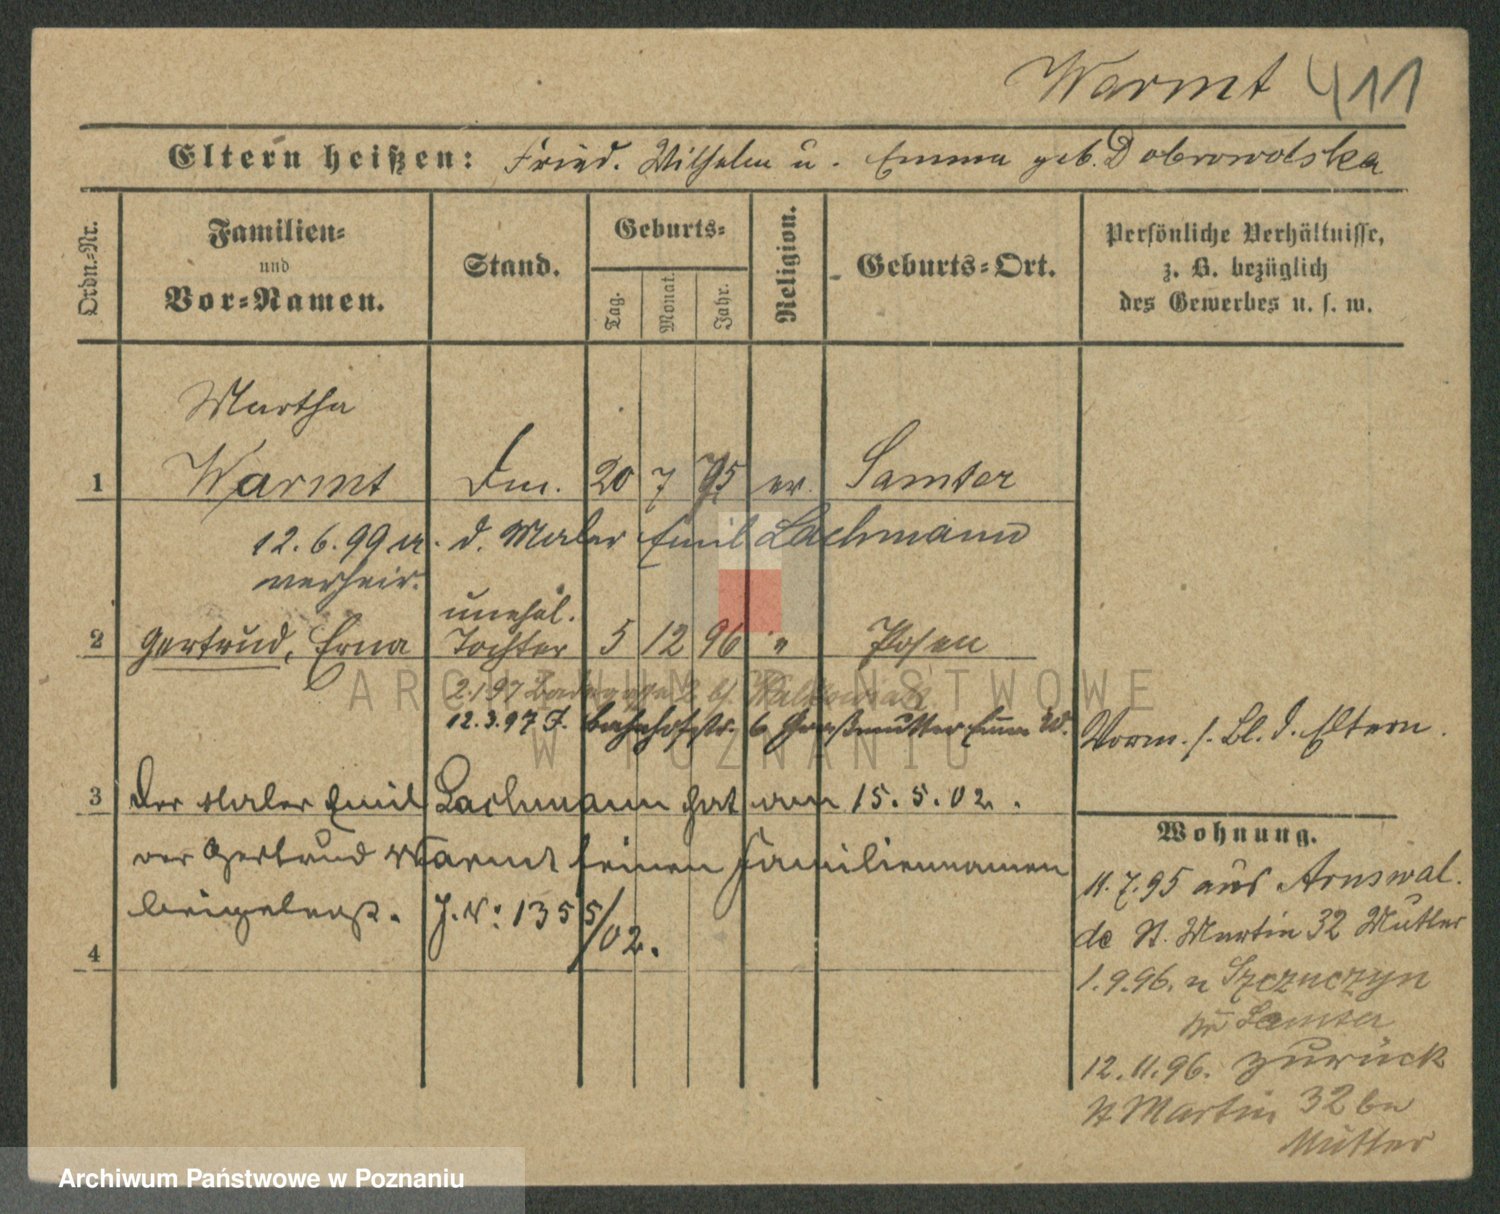 Warmt 411
Eltern heißen: Fried. Wilhelm u. Emma geb. Dobrowolska
Ordn.-Nr.
Familien-
und
Vor-Namen.
Stand.
Geburts-
Tag.
Monat.
Jahr.
Religion.
Geburts-Ort.
Persönliche Verhältnisse,
z. B. bezüglich
des Gewerbes u. s. w.
Martha
1 Warmt 20 7 75 ev. Samter
12.6.99 a. d. Maler Emil Lachmann
verheir.
unehel.
2 Gertrud, Erna Tochter 5 12 96 " Posen
2.1.97
12.3.97 Bahnhofstr. 6 Großmutter Emma W.
Vorm. s. Bl. d. Eltern.
3 Der Maler Emil Lachmann hat am 15.5.02.
der Gertrud Warmt seinen Familiennamen
beigelegt. J. N: 1355/02.
4
Wohnung.
11.7.95 aus Arnswal-
de St. Martin 32 Mutter
1.9.96. n Szczuczyn
Samter
12.11.96. zurück
St Martin 32 bei
Mutter
ARCHIWUM PAŃSTWOWE
W POZNANIU
Archiwum Państwowe w Poznaniu